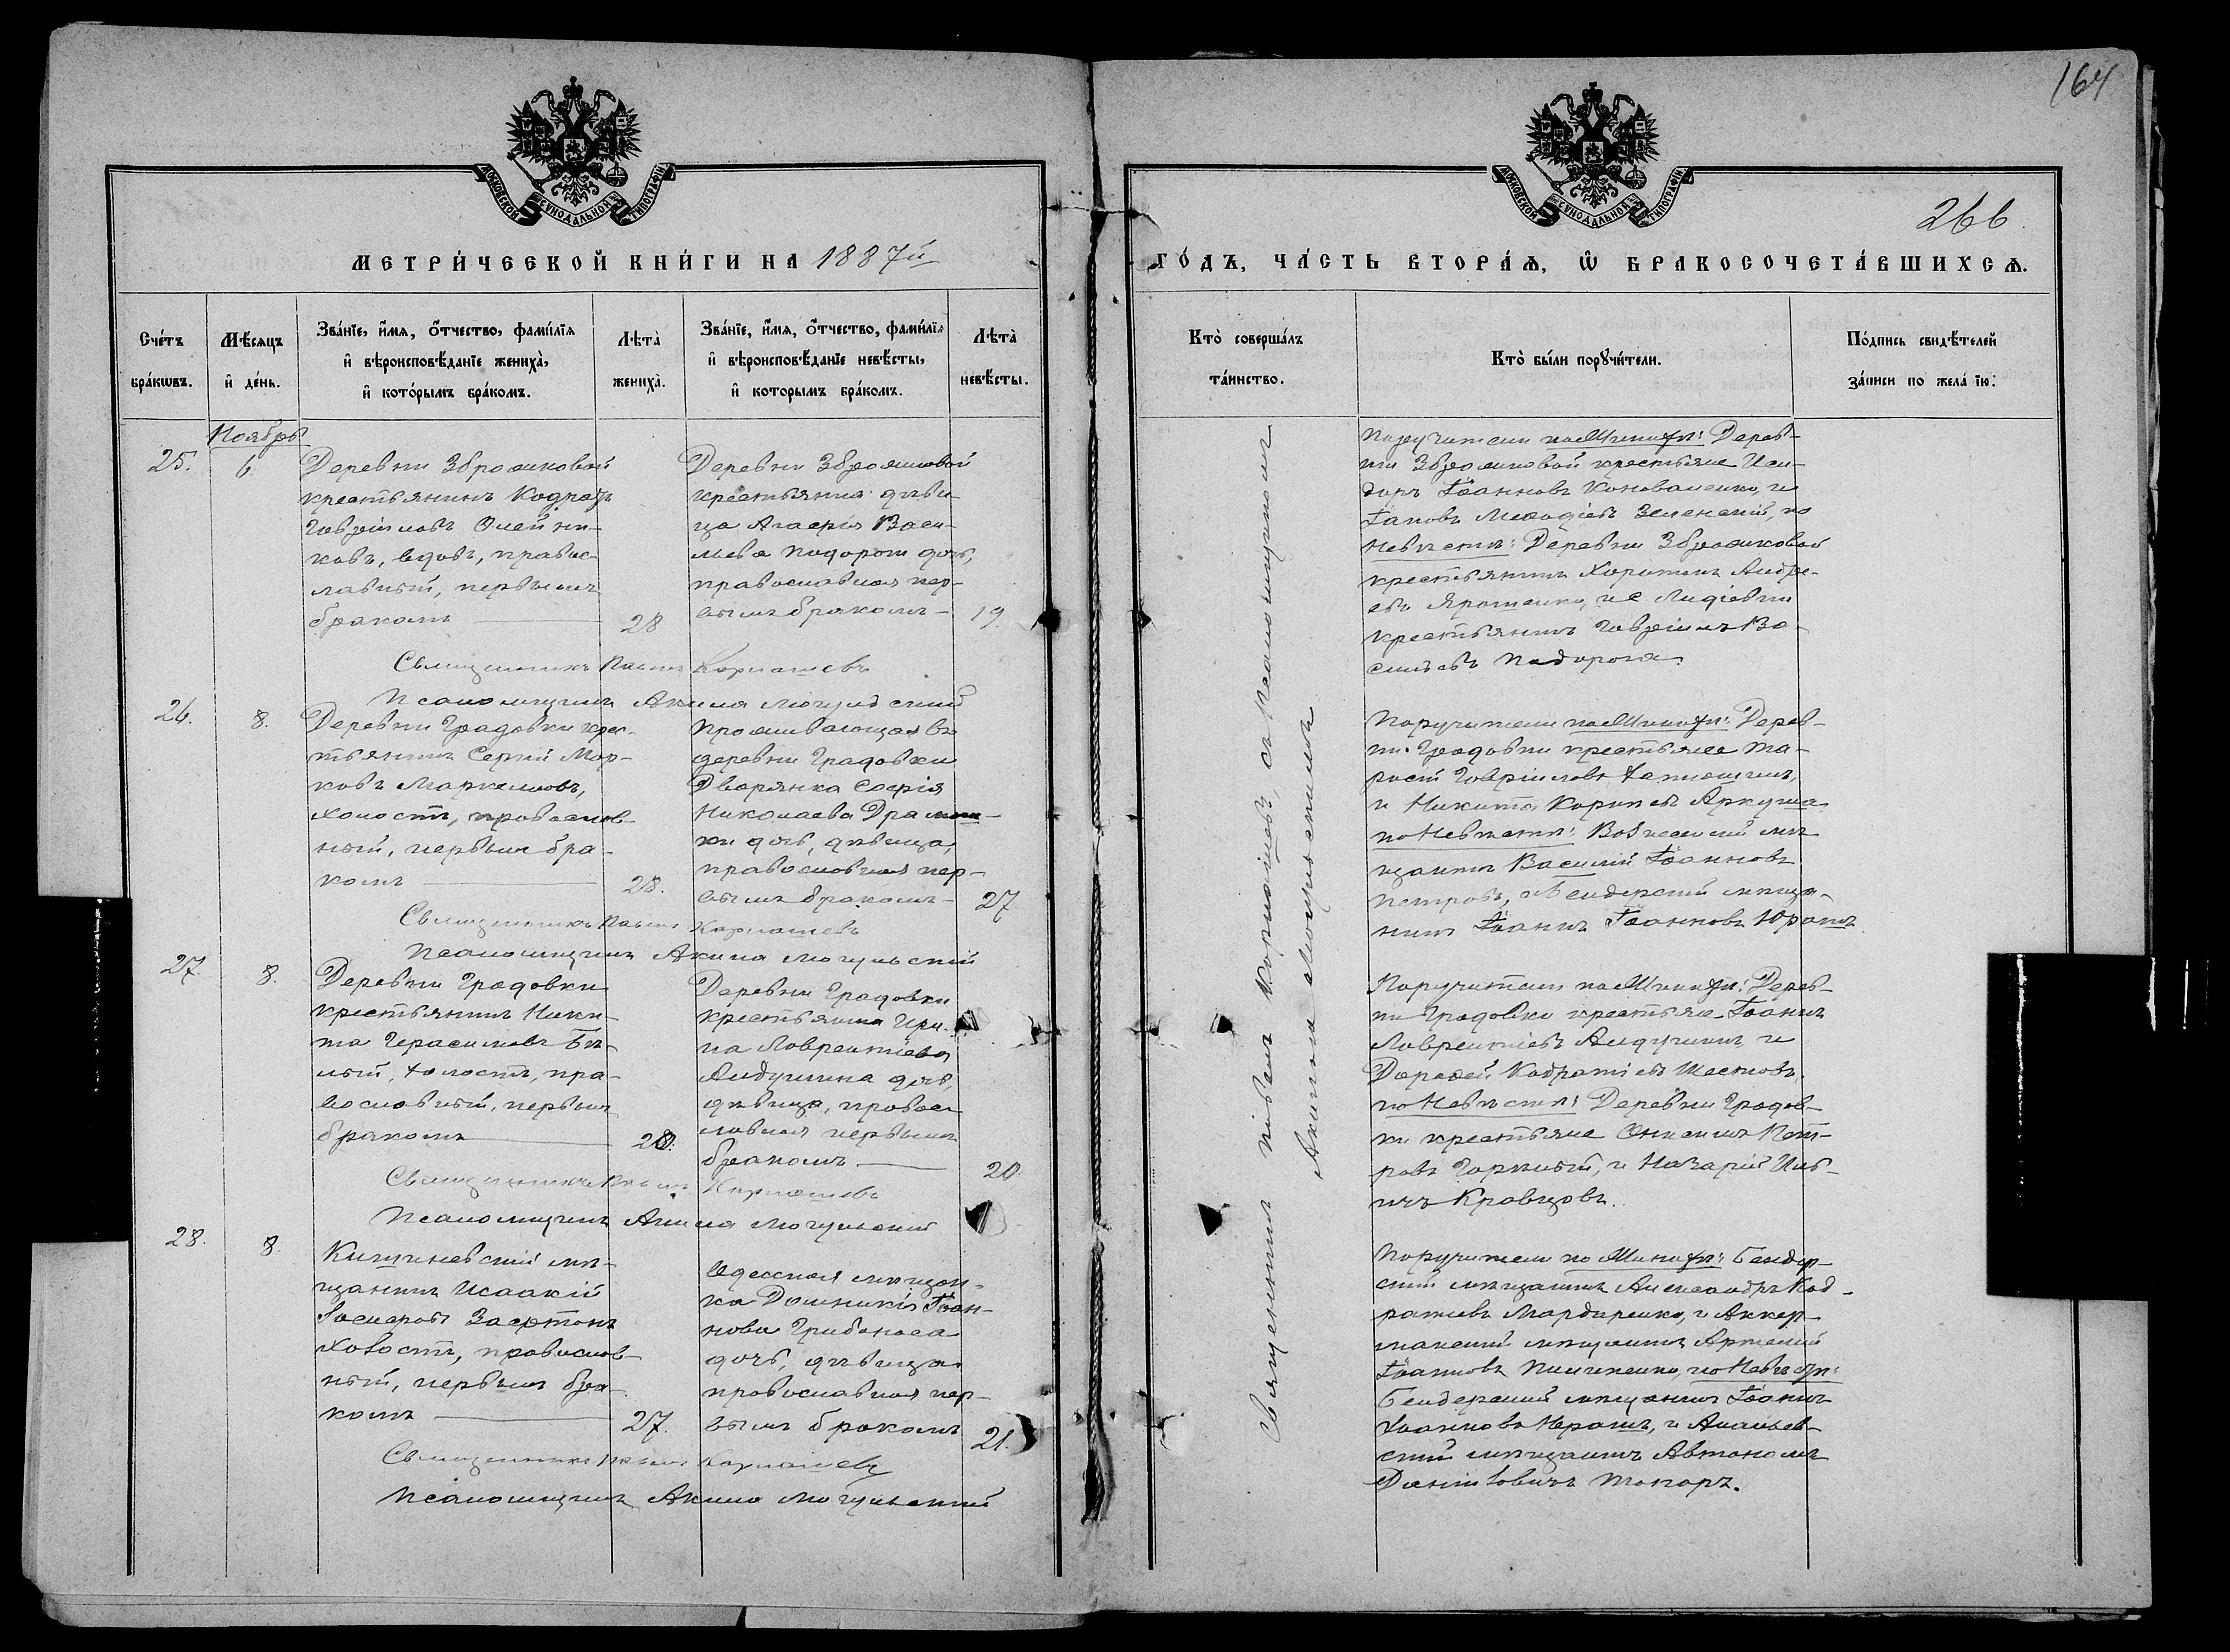 164
266
МОСКОВСКОЙ СѴНОДАЛЬНОЙ ТИПОГРАФІИ
МОСКОВСКОЙ СѴНОДАЛЬНОЙ ТИПОГРАФІИ
МЕТРИ́ЧЕСКОЙ КНИ́ГИ НА 1887й
ГО́ДЪ, ЧА́СТЬ ВТОРА́Ѧ, Ѡ҆ БРАКОСОЧЕТА́ВШИХСѦ.
Сче́тъ
бра́кѡвъ.
Мѣ́сяцъ
и҆ де́нь.
Зва́нїе, и҆́мя, ѻ҆́тчество, фами́лїя
и҆ вѣроисповѣ́данїе женихà,
и҆ кото́рымъ бра́комъ.
Лѣтà
женихà.
Зва́нїе, и҆́мя, ѻ҆́тчество, фами́лїя
и҆ вѣроисповѣ́данїе невѣ́сты,
и҆ которымъ бра́комъ.
Лѣтà
невѣ́сты.
Кто̀ соверша́лъ
та́инство.
Кто̀ бы́ли порꙋчи́тели.
По́дпись свидѣ́телей
за́писи по жела́ їю:
Ноябрь
25.
6
Деревни Зброшковой
крестьянинъ Кодратъ
Гавріиловъ Олейни-
ковъ, вдовъ, правос-
лавный, первымъ
бракомъ
28
Деревни Зброшковой
крестьянка дѣви-
ца Агафія Васи-
льева Подорога дочь,
православная пер-
вымъ бракомъ
19.
Священникъ Павелъ Карнашевъ
Псаломщикъ Акила Могульский
26.
8.
Деревни Градовки крес-
тьянинъ Сергий Мар-
ковъ Маркеловъ,
холостъ, православ-
ный, первымъ бра-
комъ
28.
Проживающая въ
деревни Градовки
Дворянка Софія
Николаева
дочь, дѣвица,
православная пер-
вымъ бракомъ
27
Священникъ Павелъ Карнашевъ
Псаломщикъ Акила Могульский
27.
8.
Деревни Градовки
крестьянинъ Ники-
та Герасимовъ Бѣ-
лый, холостъ, пра-
вославный, первымъ
бракомъ
20.
Деревни Градовки
крестьянка Ири-
на Лаврентіева
Андушкина дочь,
дѣвица, правос-
лавная первымъ
бракомъ
20.
Священникъ Павелъ Карнашевъ
Псаломщикъ Акила Могульский
28.
8.
Кишиневский мѣ-
щанинъ Исаакій
холостъ, православ-
ный, первымъ бра-
комъ
27.
Одесская мѣщан-
ка Домникія Іоан-
нова Грибоноса
дочь, дѣвица
православная пер-
вымъ бракомъ
21.
Священникъ Павелъ Карнашевъ
Псаломщикъ Акила Могульский
Священникъ Павелъ Карнашевъ, съ псаломщикомъ
Акилою Могульскимъ
Поручители по Жинихѣ: Дерев-
ни Зброшковой крестьяне Иси-
доръ Іоанновъ Коноваленко, и
Іаковъ Меѳодіевъ Зеленский, по
Невѣстѣ: Деревни Зброшковой
крестьянинъ Харитонъ Андре-
евъ Ярошенко, и с
крестьянинъ Гавріилъ Ва-
сильевъ Подорога.
Поручители по Жинихѣ: Дерев-
ни Градовки крестьяне Та-
расій Гавріиловъ
и Никита Аркуша
по Невѣстѣ: мѣ-
щанинъ Василій Іоанновъ
Петровъ, и Бендерский мѣща-
нинъ Іоаннъ Іоанновъ
Поручители по Жинихѣ: Дерев-
ни Градовки крестьяне Іоаннъ
Лаврентіевъ Андушкинъ и
Дороѳей Кодратіевъ Шестовъ,
по Невѣстѣ: Деревни Градов-
ки крестьяне Онисимъ Пет-
ровъ и Назарій Иль-
ичъ Кравцовъ.
Поручители по Жинихѣ: Бендер-
ский мѣщанинъ Александръ Код-
ратіевъ и Аккер-
манский мѣщанинъ
Іоанновъ по Невѣстѣ:
Бендерский мѣщанинъ Іоаннъ
Іоанновъ и Ананьев-
ский мѣщанинъ Автономъ
Даніиловичъ Токаръ.